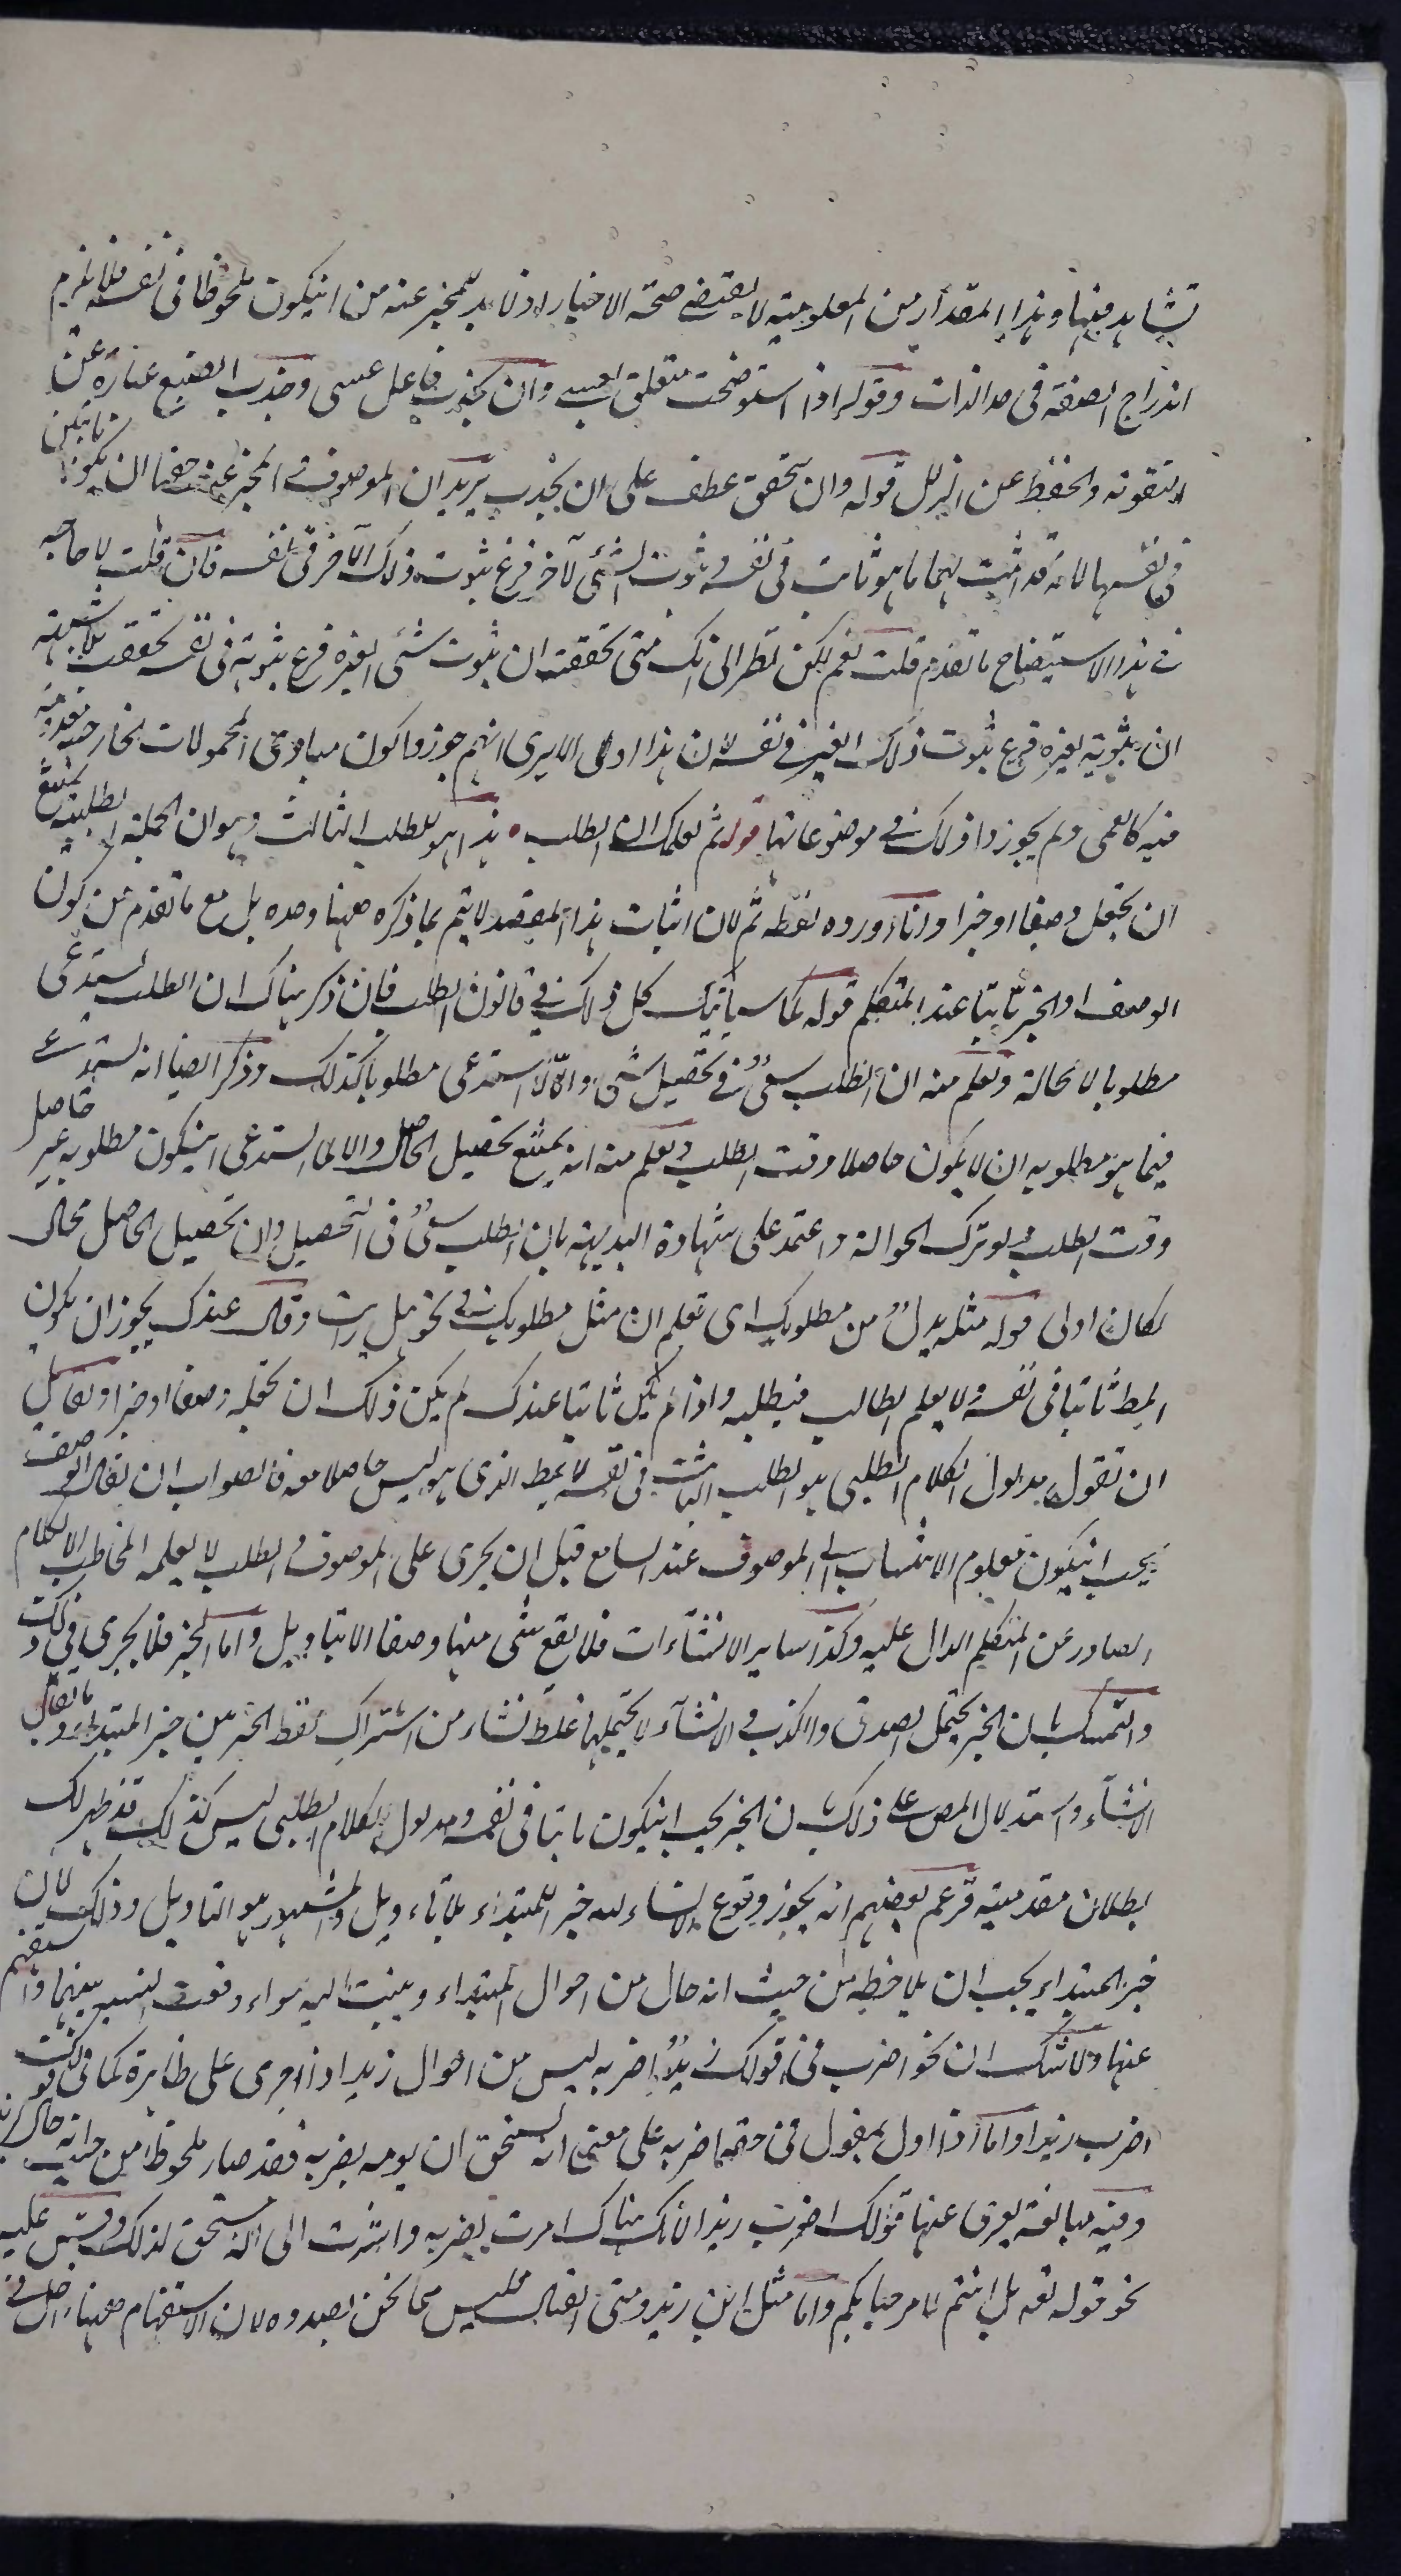 تشاهد فيها وهذا المقدار من المعلومية لا يقتضي صحة الاخبار اذ لا بد للمخبر عنه من ان يكون ملحوظا في نفسه فلا يلزم
اندراج الصفة في حد الذات وقوله اذا استوضحت متعلق بعسى وان يجذب فاعل عسى وجذب الضبع عبارة عن
التقوية والحفظ عن الزلل قوله وان تحقق عطف على ان يجذب يريد ان الموصوف والمخبر عنه حقهما ان يكونا ثابتين
في نفسهما لانه قد اثبت لهما ما هو ثابت في نفسه وثبوت الشئ لآخر فرع ثبوت ذلك الآخر في نفسه فان قلت لا حاجة
في هذا الاستيضاح ما تقدم قلت نعم لكن نظر الى انك متى تحققت ان ثبوت شئ لغيره فرع ثبوته في نفسه تحققت بلا شبهة
ان ثبوته لغيره فرع ثبوت ذلك الغير في نفسه لان هذا اولى الا يرى انهم جوزوا كون مبادئ المحمولات الخارجية معدومة
فيه كالعمى ولم يجوزوا ذلك في موضوعاتها قوله ثم لعلمك ان الطلب هذا هو المطلب الثالث وهو ان الجملة الطلبية يمتنع
ان تجعل وصفا او خبرا وانما اورده لفظة ثم لان اثبات هذا المقصد لا يتم بما ذكره ههنا وحده بل مع ما تقدم من كون
الوصف والخبر ثابتا عند المتكلم قوله كما سيأتيك كل ذلك في قانون الطلب فان ذكر هناك ان الطلب يستدعى
مطلوبا لا محالة ويعلم منه ان الطلب سعى في تحصيل شئ والا لا استدعى مطلوبا كذلك وذكر ايضا انه يستدعى
فيما هو مطلوبه ان لا يكون حاصلا وقت الطلب ويعلم منه انه يمتنع تحصيل الحاصل والا لما استدعى ان يكون مطلوبه غير حاصل
وقت الطلب ولو ترك الحوالة واعتمد على شهادة البديهة بان الطلب سعى في التحصيل وان تحصيل الحاصل محال
لكان اولى قوله مثله بدل من مطلوبك اى تعلم ان مثل مطلوبك في نحو هل رايت وقال عندك يجوز ان يكون
المط ثابتا في نفسه ولا يعلم الطالب فيطلبه واذا لم يكن ثابتا عندك لم يكن ذلك ان تجعله وصفا او خبرا ولقائل
ان تقول مدلول الكلام الطلبى هو الطلب الثابت في نفسه لا المط الذى هو ليس حاصلا معه فالصواب ان يقال الوصف
يجب ان يكون معلوم الانتساب الى الموصوف عند السامع قبل ان يجرى على الموصوف والطلب لا يعلمه المخاطب الا بالكلام
الصادر عن المتكلم الدال عليه وكذا ساير الانشاءات فلا يقع شئ منها وصفا الا بتأويل واما الخبر فلا يجرى فيه ذلك
والتمسك بان الخبر يحتمل الصدق والكذب والانشاء لا يحتملهما غلط نشاء من اشتراك لفظ الخبر بين خبر المبتداء وما يقابل
الانشاء واستدلال المص على ذلك بان الخبر يجب ان يكون ثابتا في نفسه ومدلول الكلام الطلبى ليس كذلك قد ظهر لك
بطلان مقدمتيه فزعم بعضهم انه يجوز وقوع الانشاء خبرا للمبتداء بلا تاويل والمشهور هو التاويل وذلك لان
خبر المبتداء يجب ان يلاحظ من حيث انه حال من احوال المبتداء وينسب اليه سواء وقعت النسبة بينهما او استفهم
عنها ولا شك ان نحو اضرب في قولك زيد اضربه ليس من احوال زيد اذا اجرى على ظاهره كما في قولك
اضرب زيدا واما اذا اول بمقول في حقه اضربه على معنى انه يستحق ان يومر بضربه فقد صار ملحوظا من حيث انه حال
وفيه مبالغة يعرى عنها قولك اضرب زيدا لانك هناك امرت بضربه واشرت الى انه مستحق لذلك وقس عليه
نحو قوله تعه بل انتم لا مرحبا بكم واما مثل اين زيد ومتى القتال فليس مما نحن بصدده لان الاستفهام ههنا داخل في